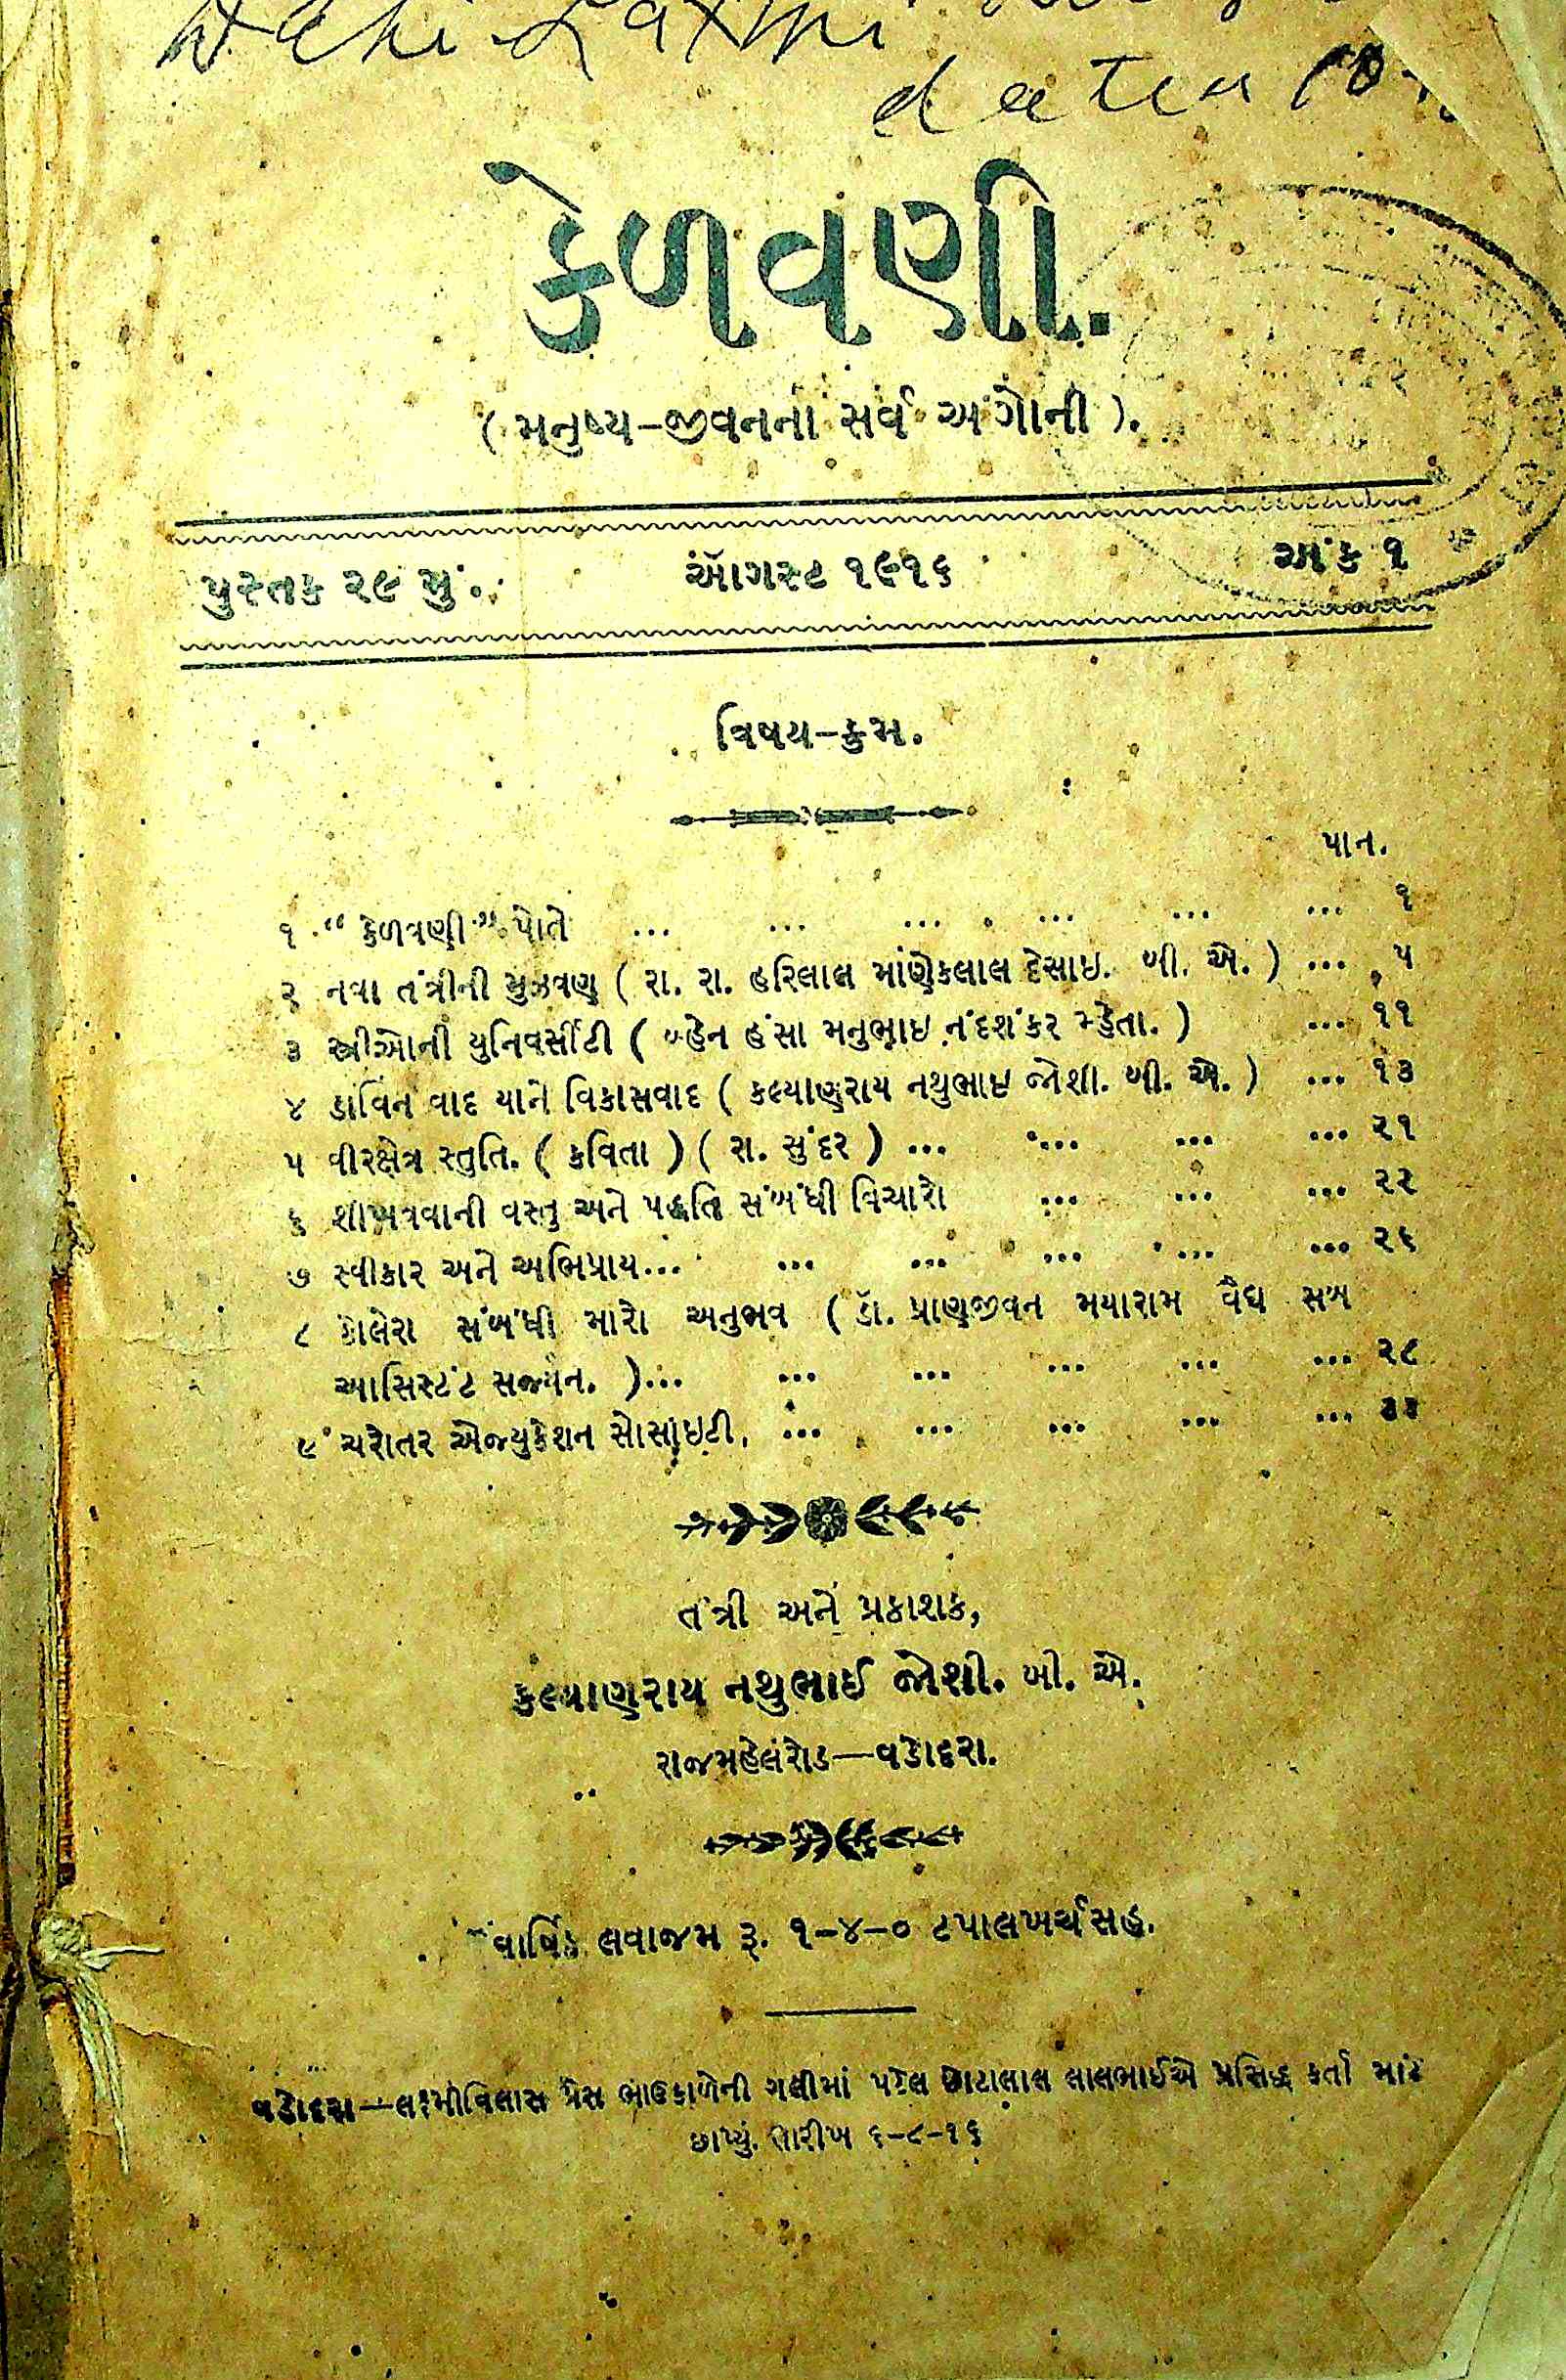 Dahi Laxmi
કેળવણી.
( મનુષ્ય-જીવનનાં સર્વ અંગોની ).
પુસ્તક ૨૯ મું. ઑગસ્ટ ૧૯૧૬ અંક ૧
વિષય-ક્રમ.
પાન.
૧ “ કેળવણી ” પોતે ... ... ... ... ... ... ૧
૨ નવા તંત્રીની મુઝવણ ( રા. રા. હરિલાલ માંણેકલાલ દેસાઇ. બી. એ. ) ... ૫
૩ સ્ત્રીઓની યુનિવર્સીટી ( બ્હેન હંસા મનુભાઇ નંદશંકર મ્હેતા. ) ... ૧૧
૪ ડાર્વિન વાદ યાને વિકાસવાદ ( કલ્યાણરાય નથુભાઇ જોશી. બી. એ. ) ... ૧૩
૫ વીરક્ષેત્ર સ્તુતિ. ( કવિતા ) ( રા. સુંદર ) ... ... ... ... ૨૧
૬ શીખવવાની વસ્તુ અને પદ્ધતિ સંબંધી વિચારો ... ... ... ૨૨
૭ સ્વીકાર અને અભિપ્રાય... ... ... ... ... ... ૨૬
૮ કોલેરા સંબંધી મારો અનુભવ ( ડૉ. પ્રાણજીવન મયારામ વૈદ્ય સબ
આસિસ્ટંટ સર્જ્યન. )... ... ... ... ... ... ૨૮
૯ ચરોતર એજ્યુકેશન સોસાઇટી. ... ... ... ... ... ૩૩
તંત્રી અને પ્રકાશક,
કલ્યાણરાય નથુભાઈ જોશી. બી. એ.
રાજમહેલરોડ—વડોદરા.
વાર્ષિક લવાજમ રૂ. ૧-૪-૦ ટપાલખર્ચ સહ.
વડોદરા—લક્ષ્મીવિલાસ પ્રેસ ભાઉકાળેની ગલીમાં પટેલ છોટાલાલ લાલભાઈએ પ્રસિદ્ધ કર્તા માટે
છાપ્યું. તારીખ ૬-૮-૧૬